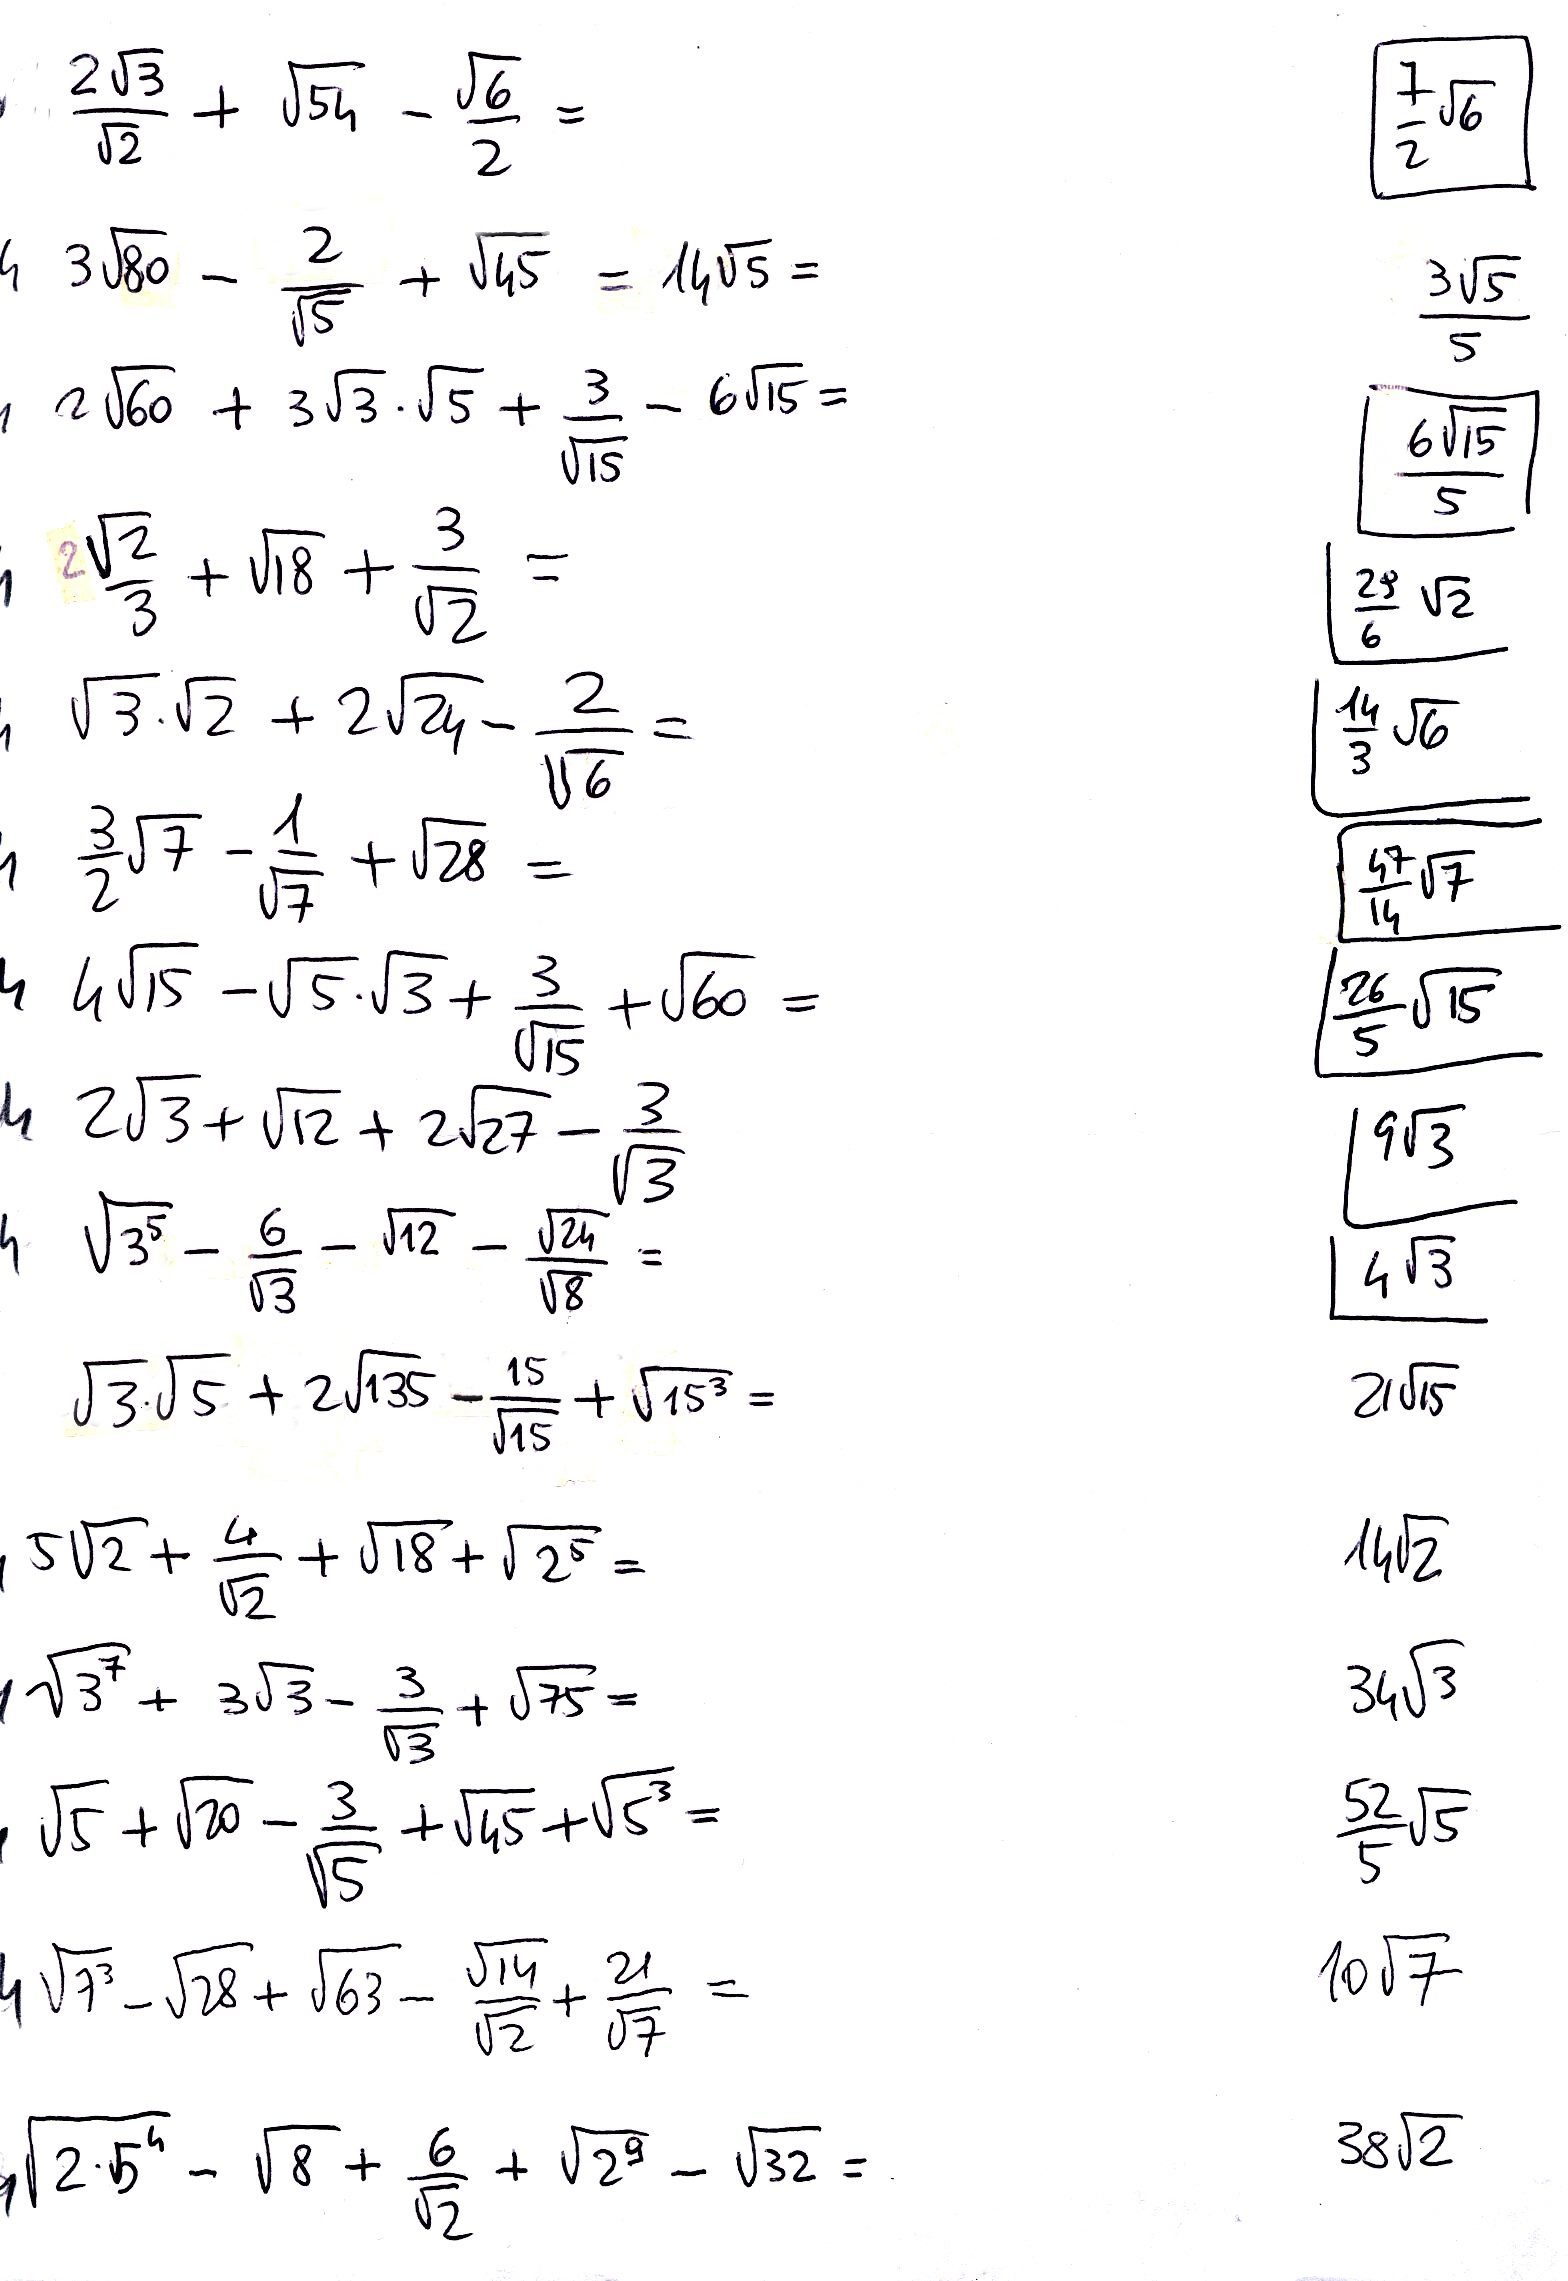 2√3/√2 + √54 - √6/2 = 7/2 √6
3√80 - 2/√5 + √45 = 14√5 = 3√5/5
2√60 + 3√3·√5 + 3/√15 - 6√15 = 6√15/5
2√2/3 + √18 + 3/√2 = 29/6 √2
√3·√2 + 2√24 - 2/√6 = 14/3 √6
3/2 √7 - 1/√7 + √28 = 47/14 √7
4√15 - √5·√3 + 3/√15 + √60 = 26/5 √15
2√3 + √12 + 2√27 - 3/√3 9√3
√3⁵ - 6/√3 - √12 - √24/√8 = 4√3
√3·√5 + 2√135 - 15/√15 + √15³ = 21√15
5√2 + 4/√2 + √18 + √2⁵ = 14√2
√3⁷ + 3√3 - 3/√3 + √75 = 34√3
√5 + √20 - 3/√5 + √45 + √5³ = 52/5 √5
√7³ - √28 + √63 - √14/√2 + 21/√7 = 10√7
√2·5⁴ - √8 + 6/√2 + √2⁹ - √32 = 38√2